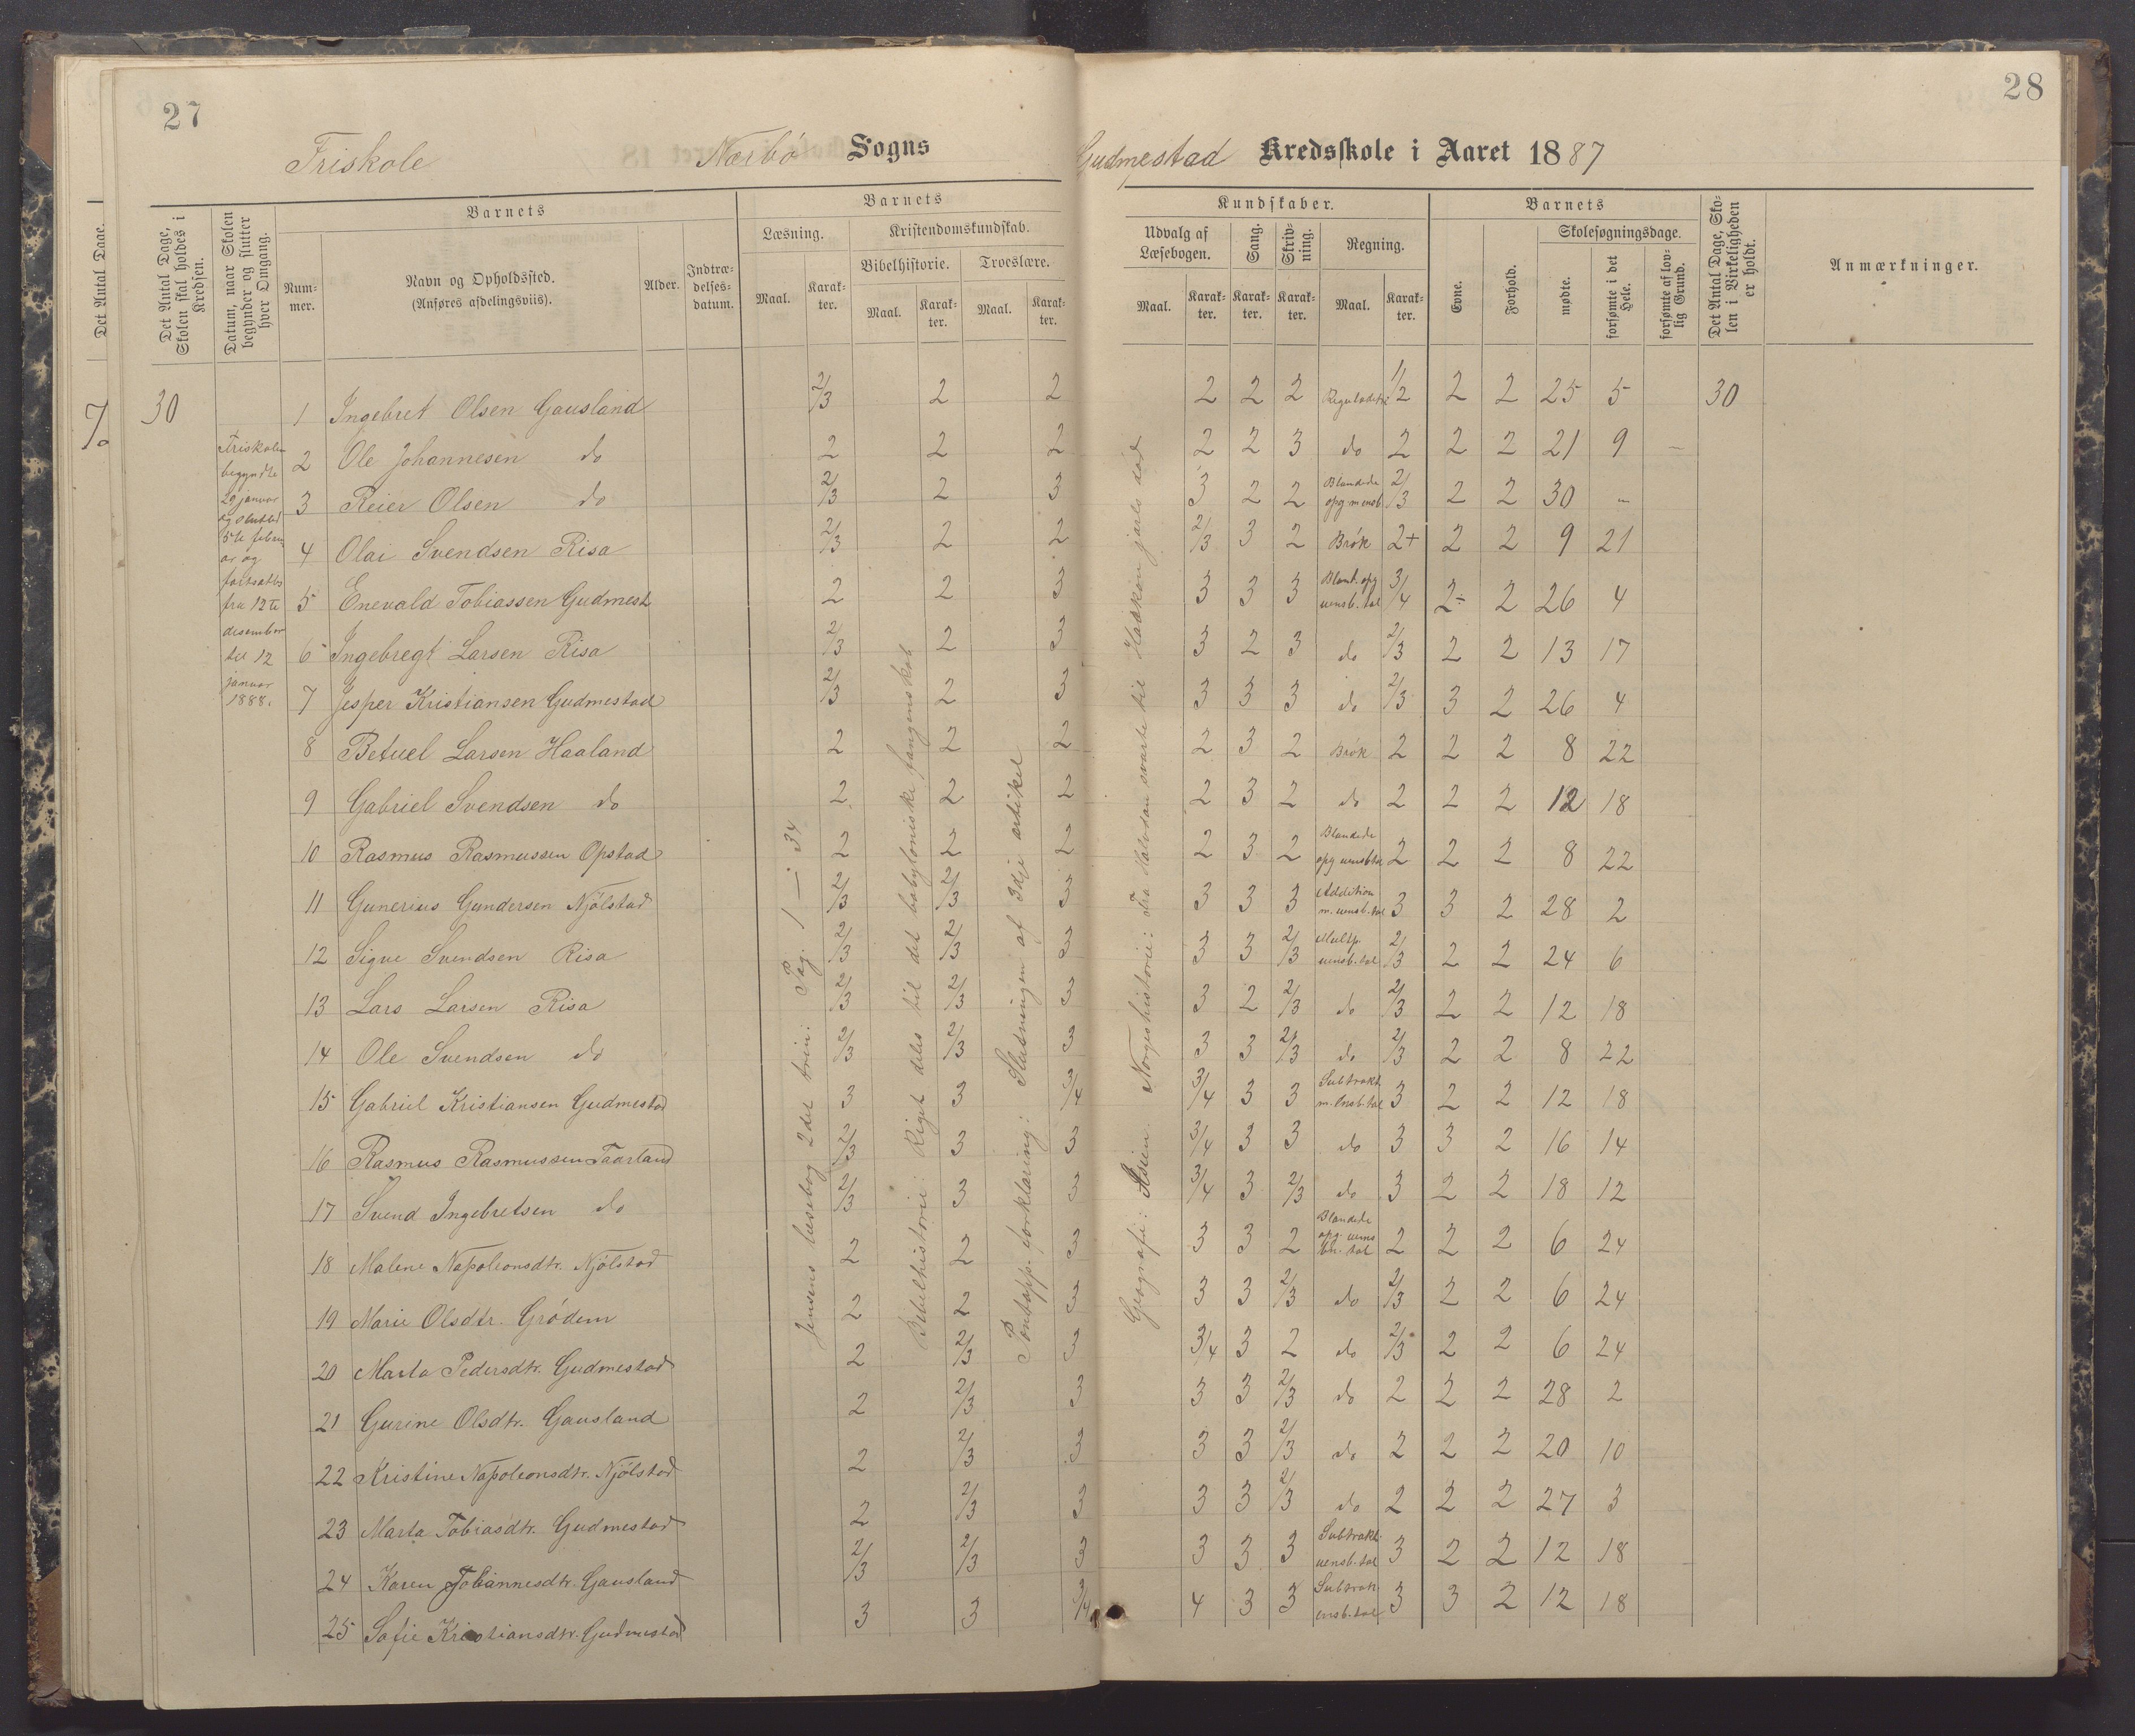 27
28
Friskole Nærbö Sogns Gudmestad Kredsskole i Aaret 1887
Det Antal Dage.
Det Antal Dage, Skolen skal holdes i Kredsen.
Datum, naar Skolen begynder og slutter hver Omgang.
Barnets
Nummer.
Navn og Opholdssted.
(Anføres afdelingsviis).
Alder.
Indtrædelses-datum.
Barnets
Læsning.
Maal.
Karakter.
Kristendomskundskab.
Bibelhistorie.
Maal.
Karakter.
Troeslære.
Maal.
Karakter.
Kundskaber.
Udvalg af Læsebogen.
Maal.
Karakter.
Sang.
Karakter.
Skrivning.
Karakter.
Regning.
Maal.
Karakter.
Barnets
Evne.
Forhold.
Skolesøgningsdage.
mødte.
forsømte i det Hele.
forsømte af lovlig Grund.
Det Antal Dage, Skolen i Virkeligheden er holdt.
Anmærkninger.
30
Friskolen
begyndte
29 januar
og sluttet
5te febru
ar og
fortsattes
fra 12te
desember
til 12
januar
1888.
Jensens læsebog 2det trin: Pag. 1 — 34
Bibelhistorie: Riget deles til det babyloniske fangenskab
Pontopp. forklaring: Slutningen af 3dje artikel
Geografi: Asien. Norgeshistorie: Fra Halvdan svarte til Haakon jarls død
1 Ingebret Olsen Gausland 2/3 2 2 2 2 2 Reguladetri 1/2 2 2 25 5 30
2 Ole Johannesen do 2 2 2 2 2 3 do 2 2 2 21 9 —
3 Reier Olsen do 2/3 2 3 3 2 2 Blandede opg m ensb 2/3 2 2 30 –
4 Olai Svendsen Risa 2/3 2 2 2/3 3 2 Brøk 2+ 2 2 9 21
5 Enevald Tobiassen Gudmest 2 2 3 3 3 3 Bland. opg uensb. tal 3/4 2÷ 2 26 4
6 Ingebregt Larsen Risa 2/3 2 3 3 2 3 do 2/3 2 2 13 17
7 Jesper Kristiansen Gudmestad 2/3 2 3 3 3 3 do 2/3 3 2 26 4
8 Betuel Larsen Haaland 2 2 2 2 3 2 Brøk 2 2 2 8 22
9 Gabriel Svendsen do 2 2 2 2 3 2 do 2 2 2 12 18
10 Rasmus Rasmussen Opstad 2 2 2 2 3 2 Blandede opg uensb tal 2 2 2 8 22
11 Gunerius Gundersen Njölstad 2/3 2/3 3 3 3 3 Addition m. uensb. tal 3 3 2 28 2
12 Sigve Svendsen Risa 2/3 2/3 3 3 3 2/3 Multp. uensb. tal 2/3 2 2 24 6
13 Lars Larsen Risa 2/3 2/3 3 3 2 2/3 do 2/3 2 2 12 18
14 Ole Svendsen do 2/3 2/3 3 3 3 2/3 do 2/3 2 2 8 22
15 Gabriel Kristiansen Gudmestad 3 3 3/4 3/4 3 3 Subtrakt m. ensb. tal 3 2 2 12 18
16 Rasmus Rasmussen Taarland 2/3 3 3 3/4 3 3 do 3 3 2 16 14
17 Svend Ingebretsen do 2/3 3 3 3/4 3 2/3 do 3 2 2 18 12
18 Malene Napoleonsdtr. Njölstad 2 2 3 3 3 2 Blandede opg. uens bn. tal 2 2 2 6 24
19 Marie Olsdtr. Grödem 2 2 3 3 3 2/3 do 2/3 2 2 6 24
20 Marta Pedersdtr. Gudmestad 2 2/3 3 3/4 3 2 do 2/3 2 2 6 24
21 Gurine Olsdtr. Gausland 2 2/3 3 3 3 2/3 do 2 2 2 28 2
22 Kristine Napoleonsdtr. Njölstad 2 2/3 3 3 3 2/3 do 2 2 2 20 10
23 Marta Tobiasdtr. Gudmestad 2 2/3 3 3 3 2/3 do 2 2 2 27 3
24 Karen Johannesdtr. Gausland 2/3 2/3 3 3 3 3 Subtrakt. uensb. tal 3 2 2 12 18
25 Sofie Kristiansdtr. Gudmestad 3 3 3/4 4 3 3 Subtrak. ensb. tal 3 3 2 12 18